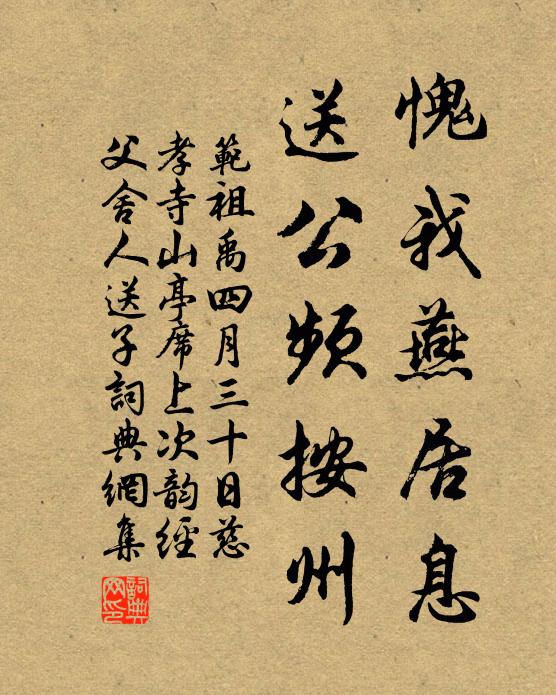 愧我燕居息
送公頻按州
範祖禹四月三十日慈
孝寺山亭席上次韵經
父舍人送子詞典網集
詞典网印